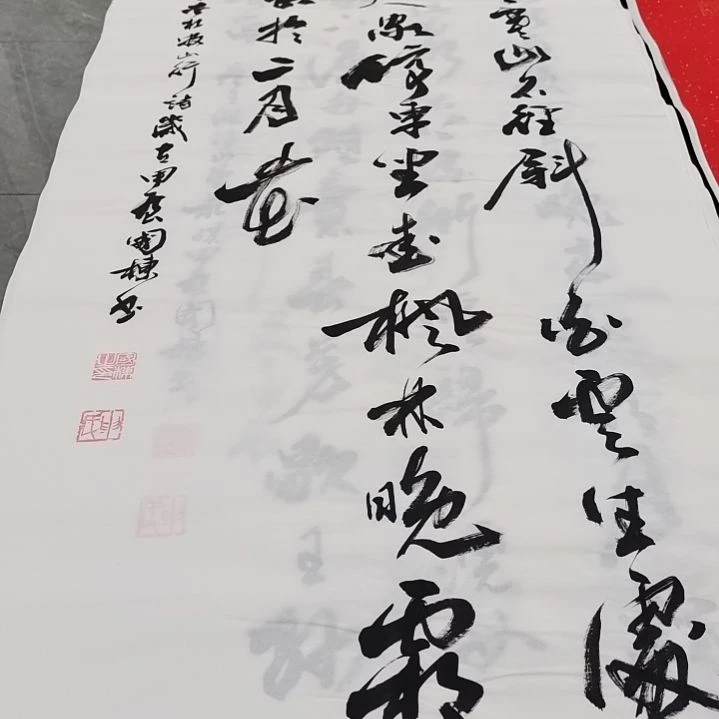 寒山石徑斜白雲生處
人家停車坐愛楓林晚霜
於二月花
杜牧山行詩歲在甲辰國棟書